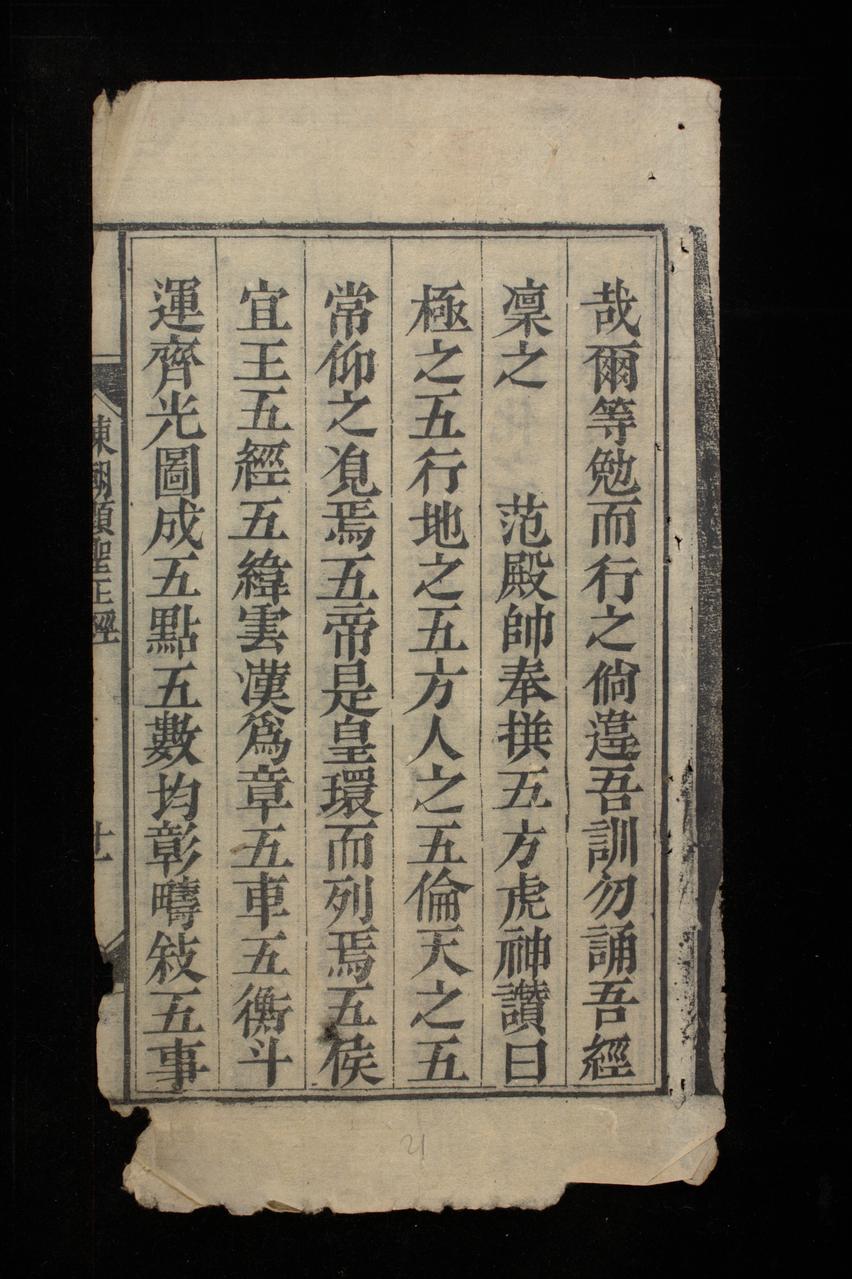 哉爾等勉而行之倘違吾訓勿誦吾經
凜之　　范殿帥奉撰五方虎神讚曰
極之五行地之五方人之五倫天之五
常仰之凴焉五帝是皇環而列焉五侯
宜王五經五緯雲漢為章五車五衡斗
運齊光圖成五點五數均彰疇敍五事
東朝顯聖正經
廿一
21